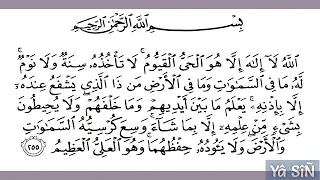 بِسْمِ اللَّهِ الرَّحْمَٰنِ الرَّحِيمِ
اللَّهُ لَا إِلَٰهَ إِلَّا هُوَ الْحَيُّ الْقَيُّومُ ۚ لَا تَأْخُذُهُ سِنَةٌ وَلَا نَوْمٌ ۚ
لَهُ مَا فِي السَّمَاوَاتِ وَمَا فِي الْأَرْضِ مَن ذَا الَّذِي يَشْفَعُ عِندَهُ
إِلَّا بِإِذْنِهِ ۚ يَعْلَمُ مَا بَيْنَ أَيْدِيهِمْ وَمَا خَلْفَهُمْ وَلَا يُحِيطُونَ
بِشَيْءٍ مِّنْ عِلْمِهِ إِلَّا بِمَا شَاءَ ۚ وَسِعَ كُرْسِيُّهُ السَّمَاوَاتِ
وَالْأَرْضَ ۖ وَلَا يَئُودُهُ حِفْظُهُمَا ۚ وَهُوَ الْعَلِيُّ الْعَظِيمُ ٢٥٥
Yâ SîÑ